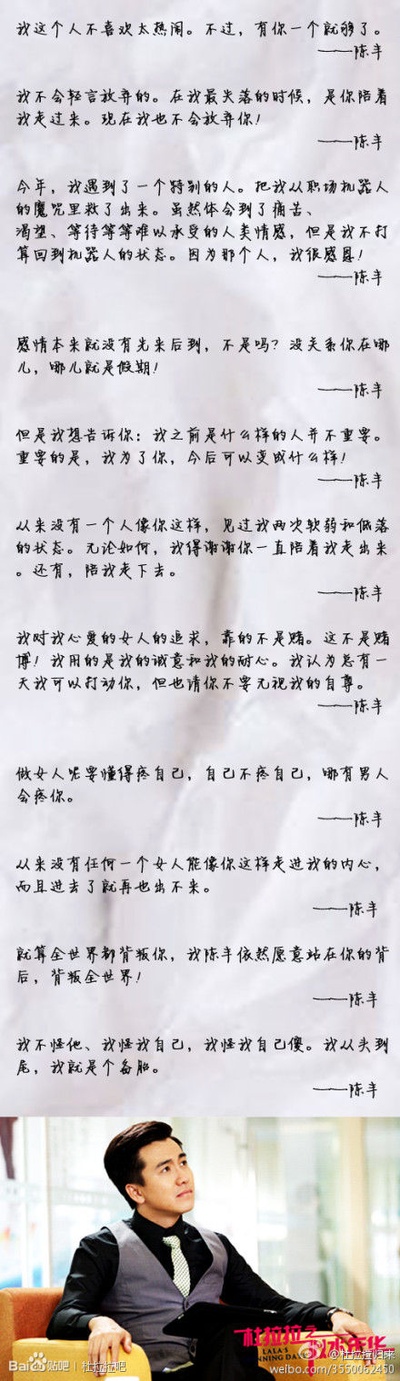 我这个人不喜欢太热闹。不过，有你一个就够了。
——陈丰
我不会轻言放弃的。在我最失落的时候，是你陪着
我走过来。现在我也不会放弃你！
——陈丰
今年，我遇到了一个特别的人。把我从职场机器人
的魔咒里救了出来。虽然体会到了痛苦、
渴望、等待等等难以承受的人类情感，但是我不打
算回到机器人的状态。因为那个人，我很感恩！
——陈丰
感情本来就没有先来后到，不是吗？没关系你在哪
儿，哪儿就是假期！
——陈丰
但是我想告诉你：我之前是什么样的人并不重要。
重要的是，我为了你，今后可以变成什么样！
——陈丰
从来没有一个人像你这样，见过我两次软弱和低落
的状态。无论如何，我得谢谢你一直陪着我走出来
。还有，陪我走下去。
——陈丰
我对我心爱的女人的追求，靠的不是赌。这不是赌
博！我用的是我的诚意和我的耐心。我认为总有一
天我可以打动你，但也请你不要无视我的自尊。
——陈丰
做女人呢要懂得疼自己，自己不疼自己，哪有男人
会疼你。
——陈丰
从来没有任何一个女人能像你这样走进我的内心，
而且进去了就再也出不来。
——陈丰
就算全世界都背叛你，我陈丰依然愿意站在你的背
后，背叛全世界！
——陈丰
我不怪他、我怪我自己，我怪我自己傻。我从头到
尾，我就是个备胎。
——陈丰
杜拉拉之
似水年华
LALA'S
Bai 贴吧 | 杜拉拉吧
@杜拉拉归来
weibo.com/3550062450